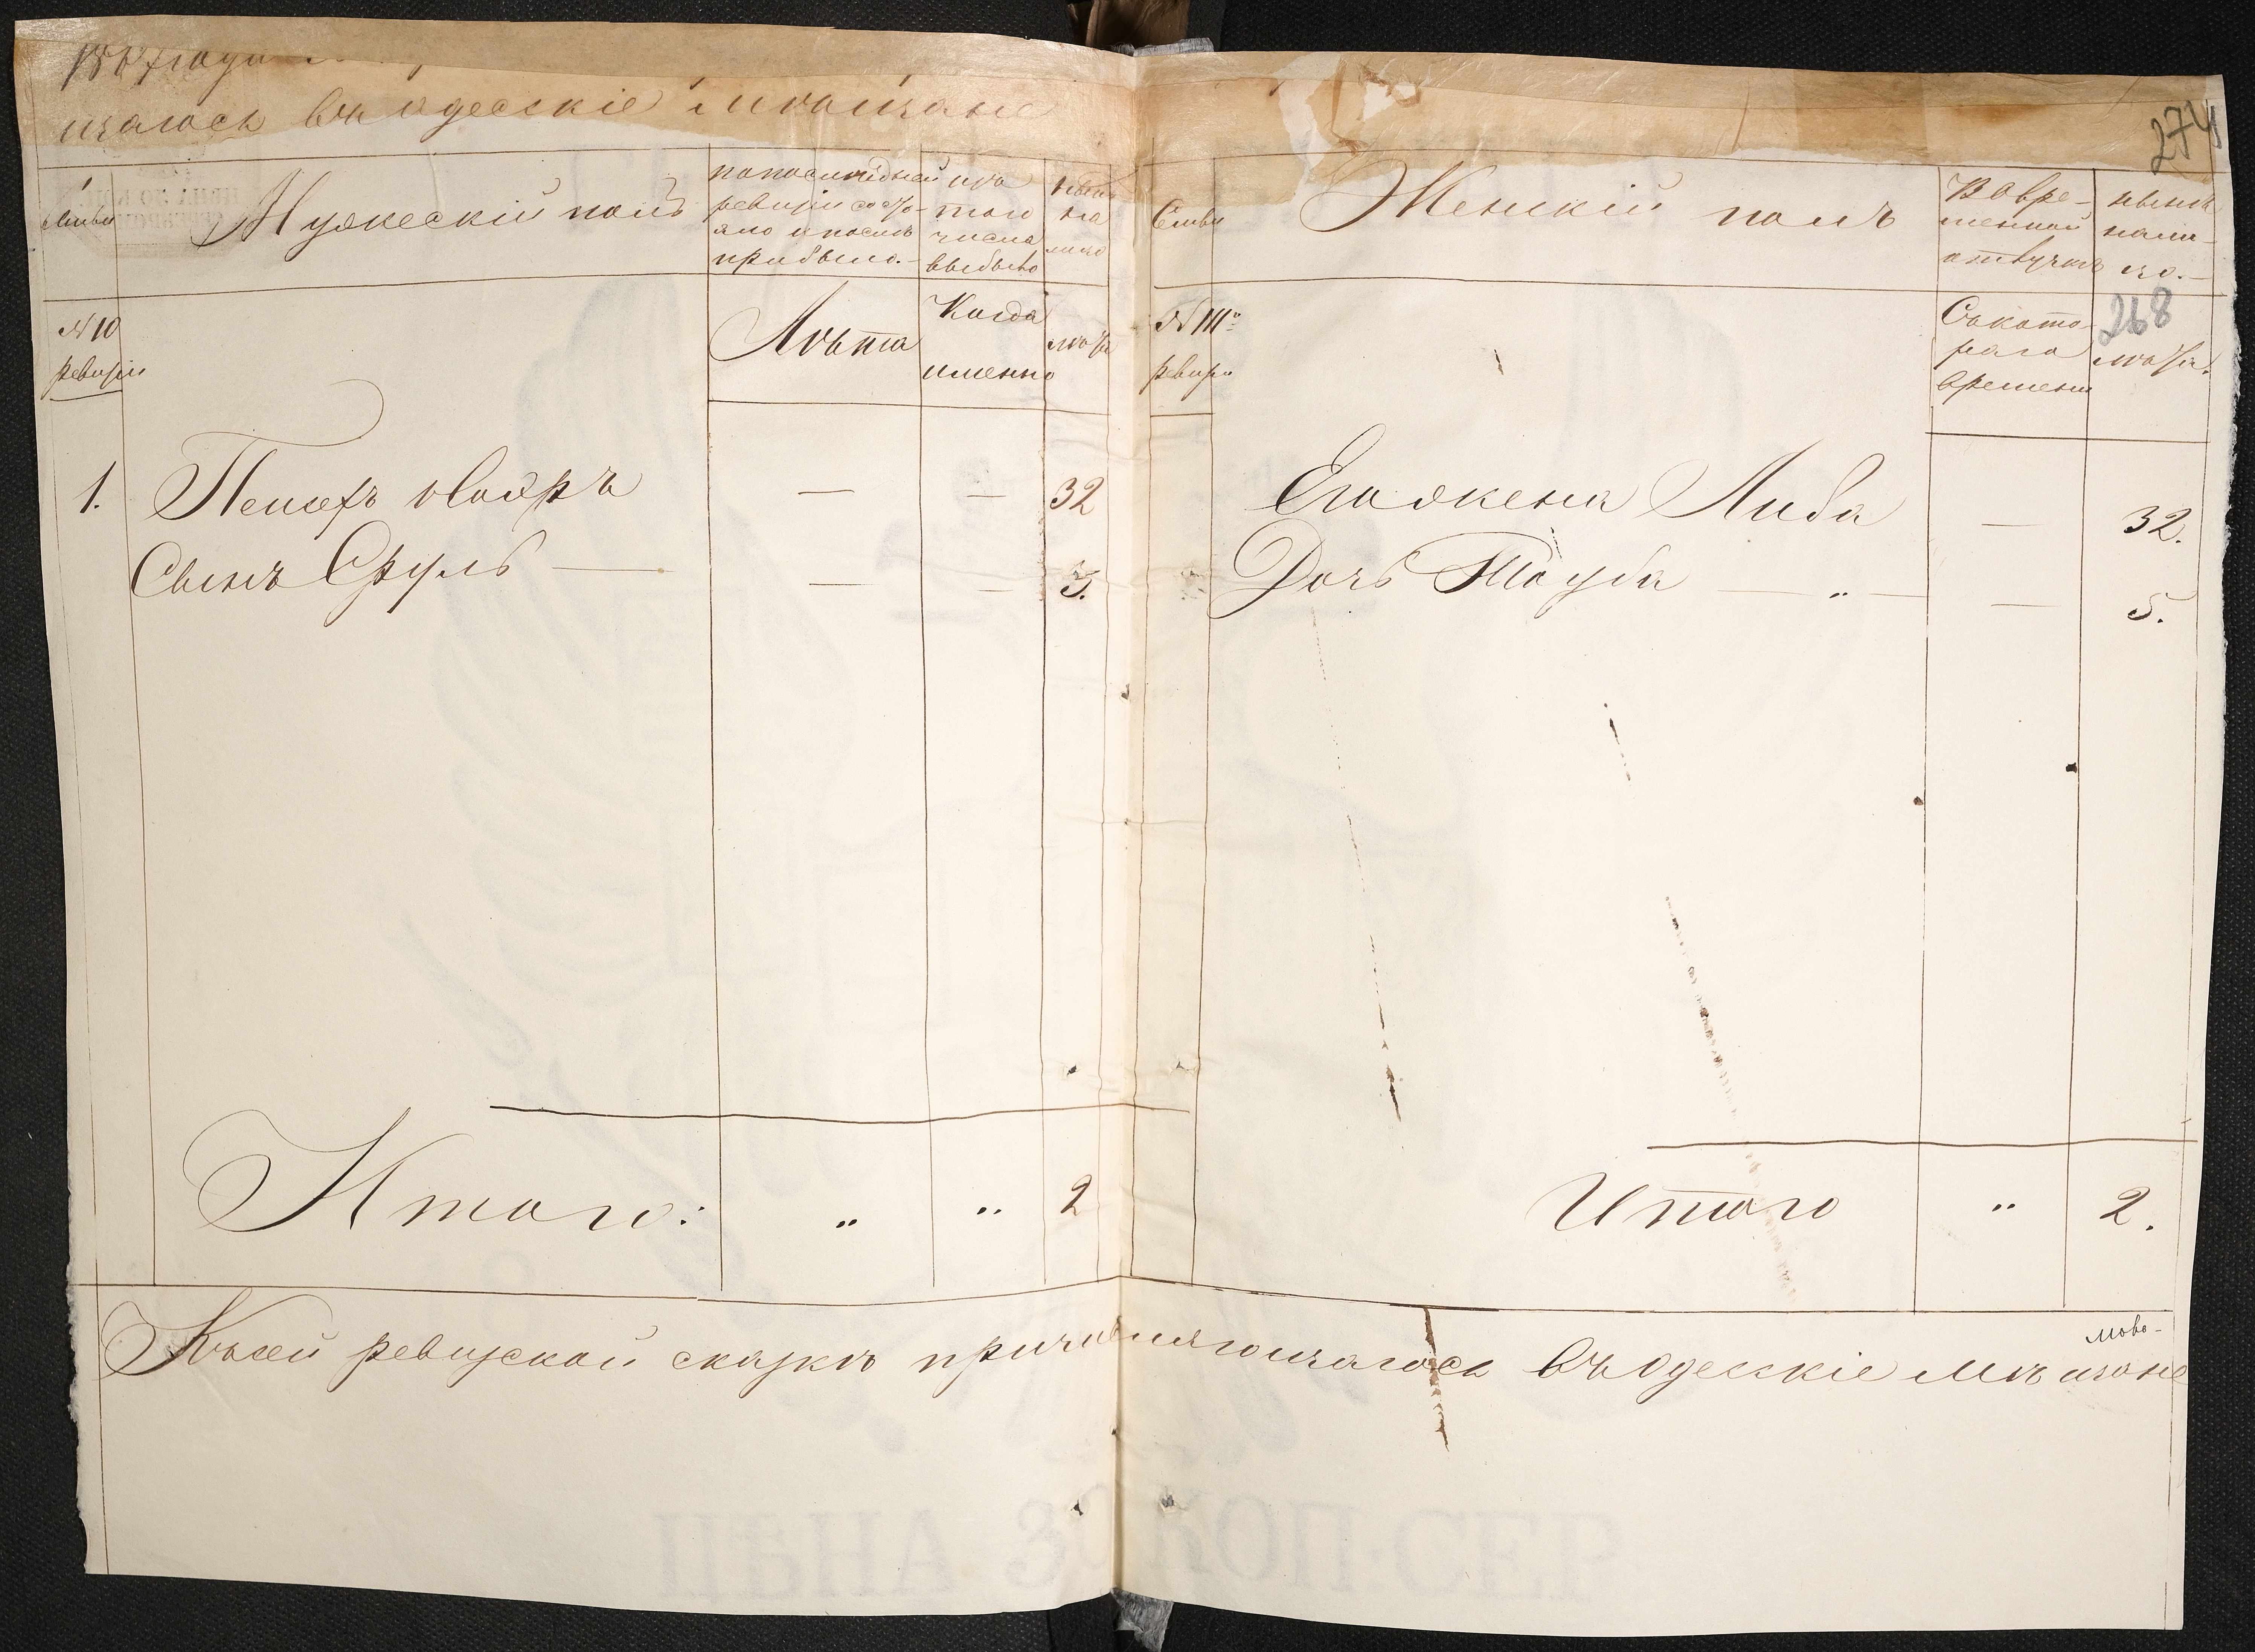 щагося въ одесскіе мѣщане
274
Семьи
Мужескій полъ
по последней
ревизіи состо-
яло и после
прибыло.
изъ
того
числа
выбыло
ныне
на
лицо
Семьи
Женскій полъ
Во вре-
менной
отлучкѣ
нынѣ
нали-
цо.
№ 10
ревизіи
Лѣта
Когда
именно
лѣта
№ III
ревизіи
Съ кото-
раго
времени
268
лѣта.
1.
— — 32
Сынъ Сруль — — — 3.
Его жена Либа — 32.
Дочь Тауба — „ — — 5.
Итого: „ „ 2
Итого „ 2.
Къ сей ревизской сказкѣ причисляющагося въ одесскіе мѣщане
ЦѢНА 30 КОП·СЕР